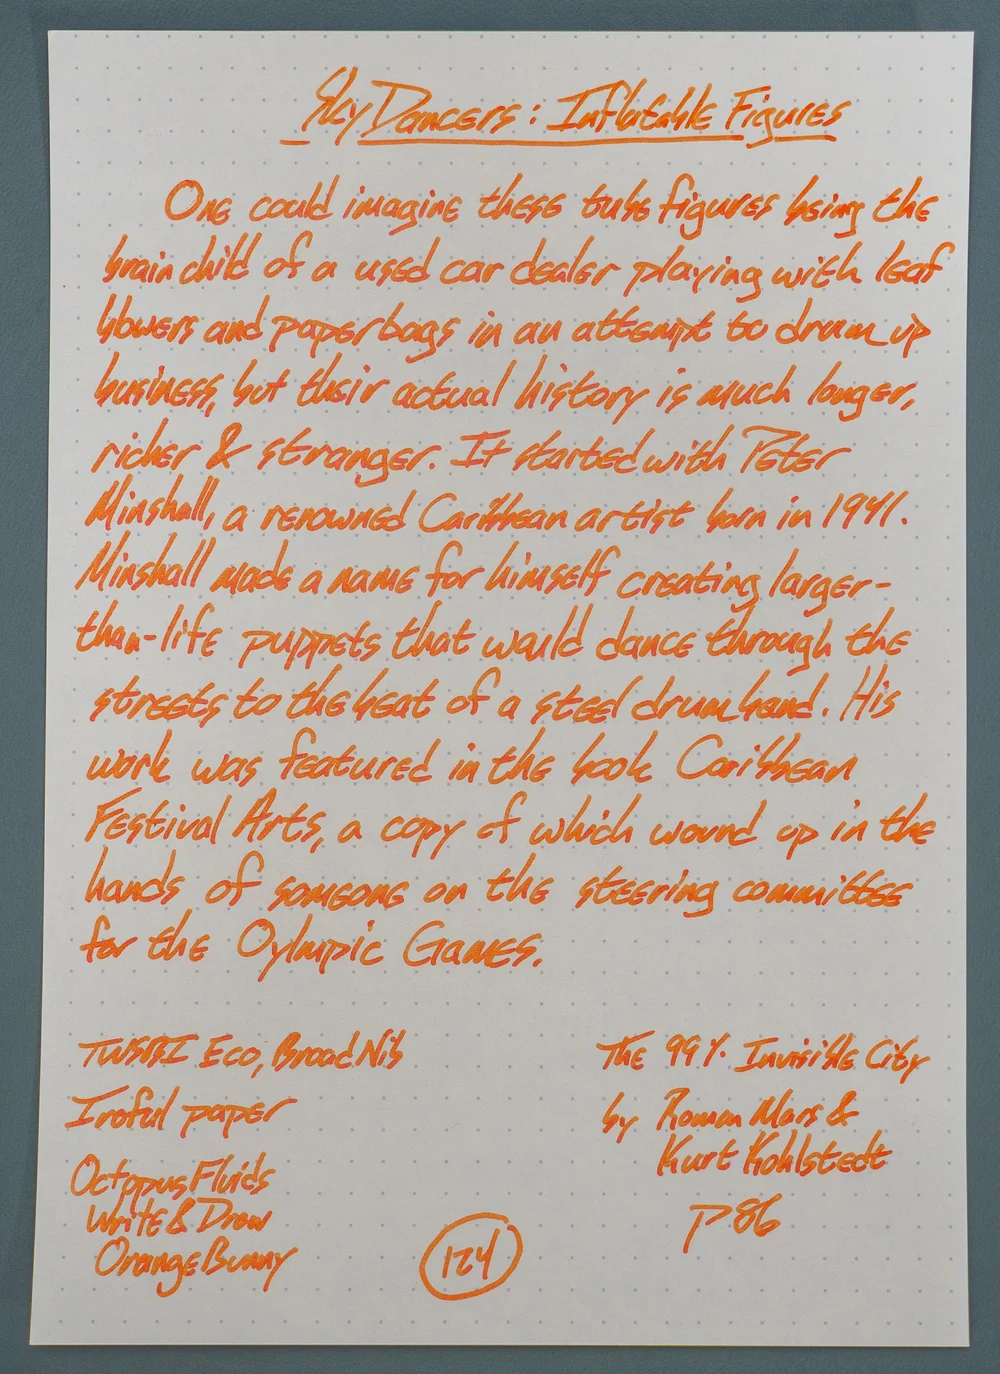 Sky Dancers: Inflatable Figures
One could imagine these tube figures being the
brain child of a used car dealer playing with leaf
blowers and paper bags in an attempt to drum up
business, but their actual history is much longer,
richer & stranger. It started with Peter
Minshall, a renowned Caribbean artist born in 1941.
Minshall made a name for himself creating larger-
than-life puppets that would dance through the
streets to the beat of a steel drum band. His
work was featured in the book Caribbean
Festival Arts, a copy of which wound up in the
hands of someone on the steering committee
for the Oylmpic Games.
TWSBI Eco, Broad Nib
Iroful paper
Octopus Fluids
Write & Draw
Orange Bunny
124
The 99% Invisible City
by Roman Mars &
Kurt Kohlstedt
p 86